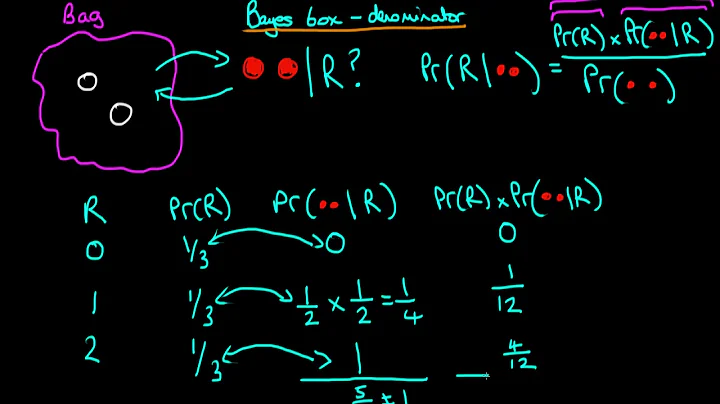 Bag
Bayes box – denominator
Pr(R) × Pr(•• | R)
•• | R? Pr(R | ••) =
Pr(••)
R Pr(R) Pr(•• | R) Pr(R) × Pr(•• | R)
0 1/3 0 0
1 1/3 1/2 × 1/2 = 1/4 1/12
2 1/3 1 4/12